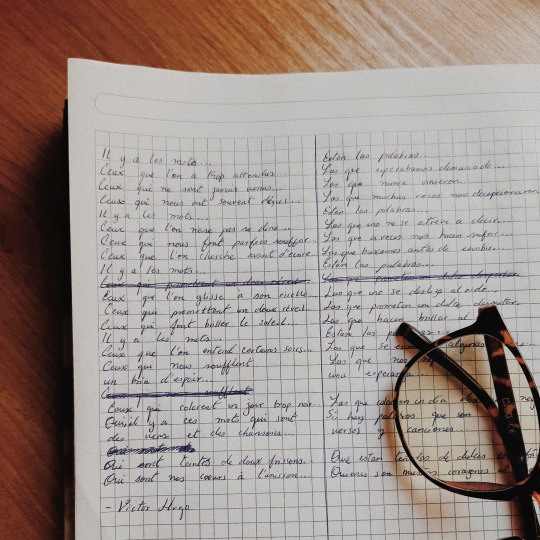 Il y a les mots...
Ceux que l'on a trop attendus...
Ceux qui ne sont jamais venus...
Ceux qui nous ont souvent déçus...
Il y a les mots...
Ceux que l'on n'ose pas se dire...
Ceux qui nous font parfois souffrir...
Ceux que l'on cherche avant d'écrire...
Il y a les mots...
Ceux que l'on glisse à son oreille...
Ceux qui promettent un doux réveil...
Ceux qui font briller le soleil...
Il y a les mots...
Ceux que l'on entend certains soirs...
Ceux qui nous soufflent
un brin d'espoir...
Ceux qui nous soufflent
Ceux qui colorent un jour trop noir...
Ou'il y a ces mots qui sont
des vers et des chansons...
Qui sont teintés de doux frissons...
Qui sont nos coeurs à l'unisson...
- Victor Hugo
Están las palabras...
Las que esperábamos demasiado...
Las que nunca vinieron...
Las que muchas veces nos decepcionaron
Están las palabras...
Las que uno no se atreve a decir...
Las que a veces nos hacen sufrir...
Las que buscamos antes de escribir...
Están las palabras...
Las que prometen un dulce despertar
Las que uno se desliza al oído...
Las que prometen un dulce despertar
Las que hacen brillar al
Están las palabras...
Las que se algunas
Las que nos
una esperanza
Las que colorean un día
Si hay palabras que son
versos y canciones
Que están de dulces
Quienes son nuestros corazones al